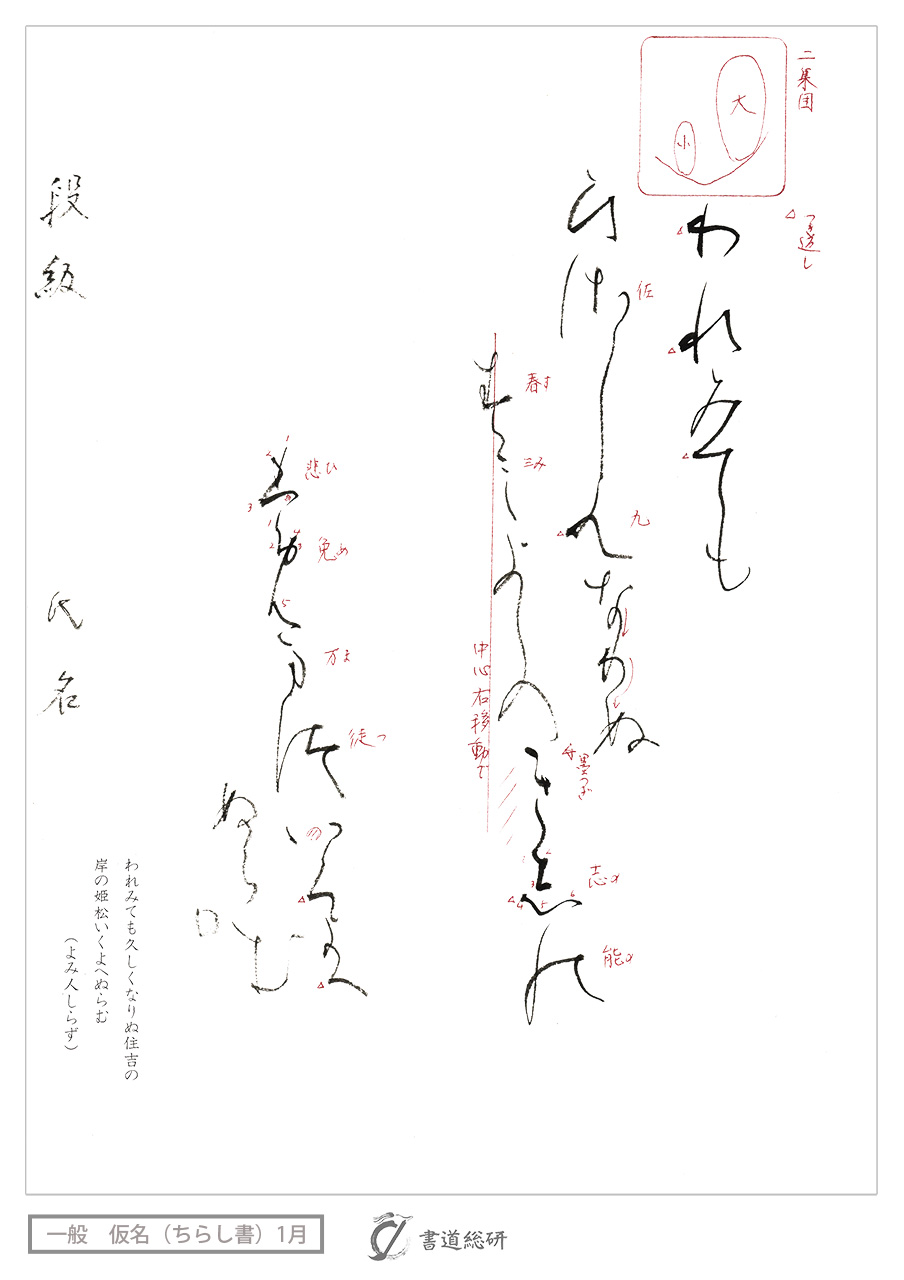 二集団
大
小
つき返し
われみても
佐
九
春す
三み
中心右移動て
墨つぎ
志し
能の
悲ひ
免め
万ま
徒つ
いくよへ
ぬらむ
段級
氏名
われみても久しくなりぬ住吉の
岸の姫松いくよへぬらむ
（よみ人しらず）
一般　仮名（ちらし書）1月
書道総研